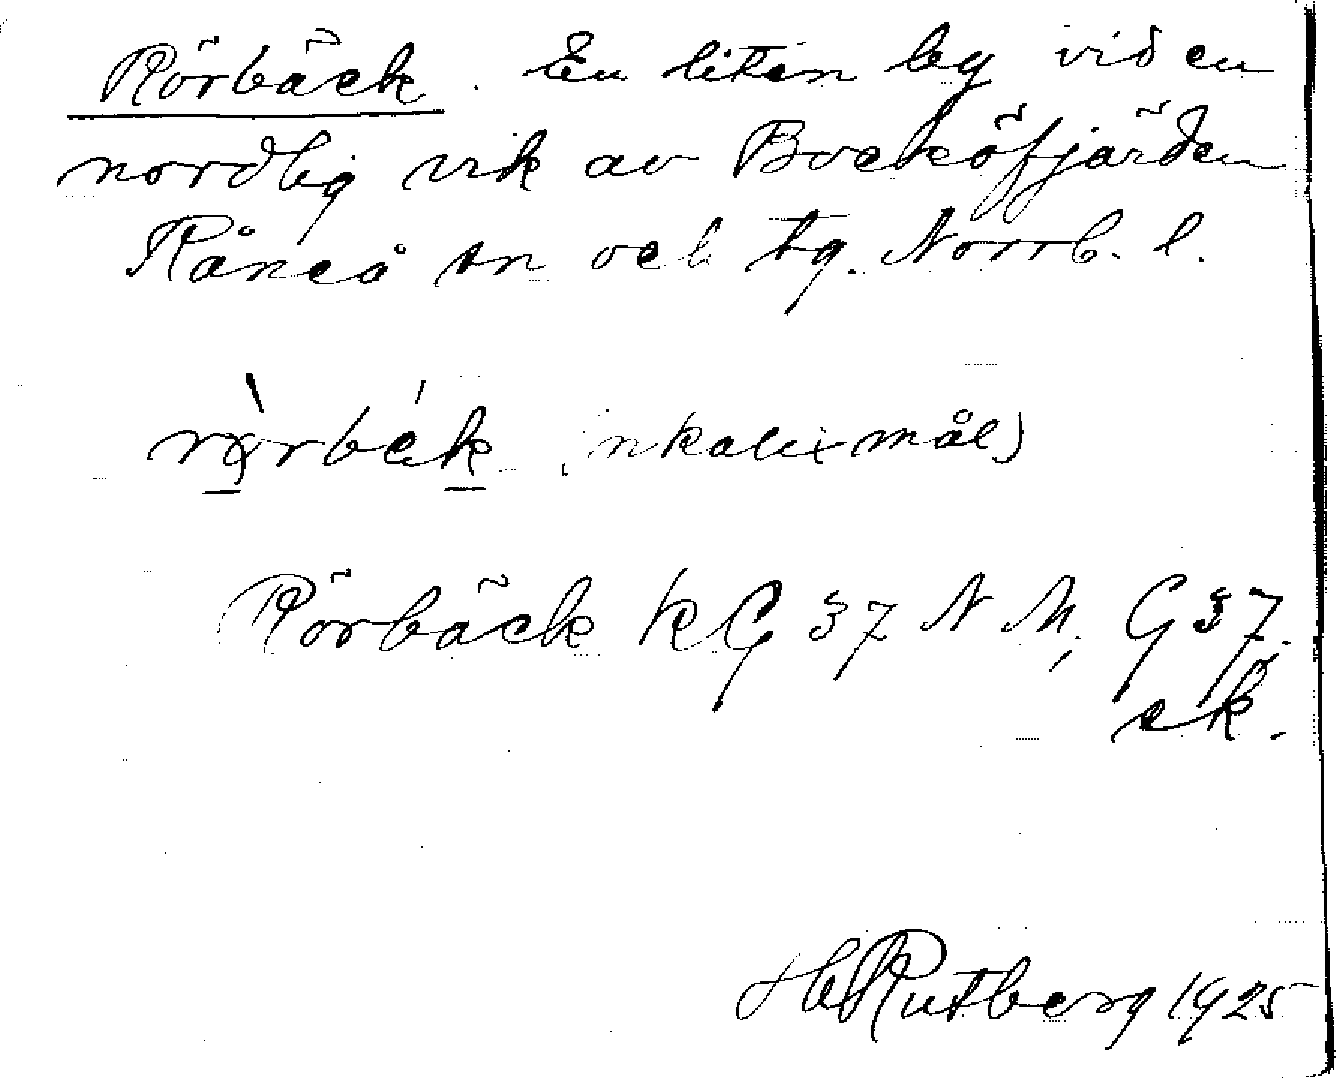 Rörbäck. En liten by vid en
nordlig vik av Bocköfjärden
Råneå sn och tg. Norrb. l.
rörbäk (nkalixmål)
Rörbäck KG 37 N M, G 37,
ek.
H Rutberg 1925